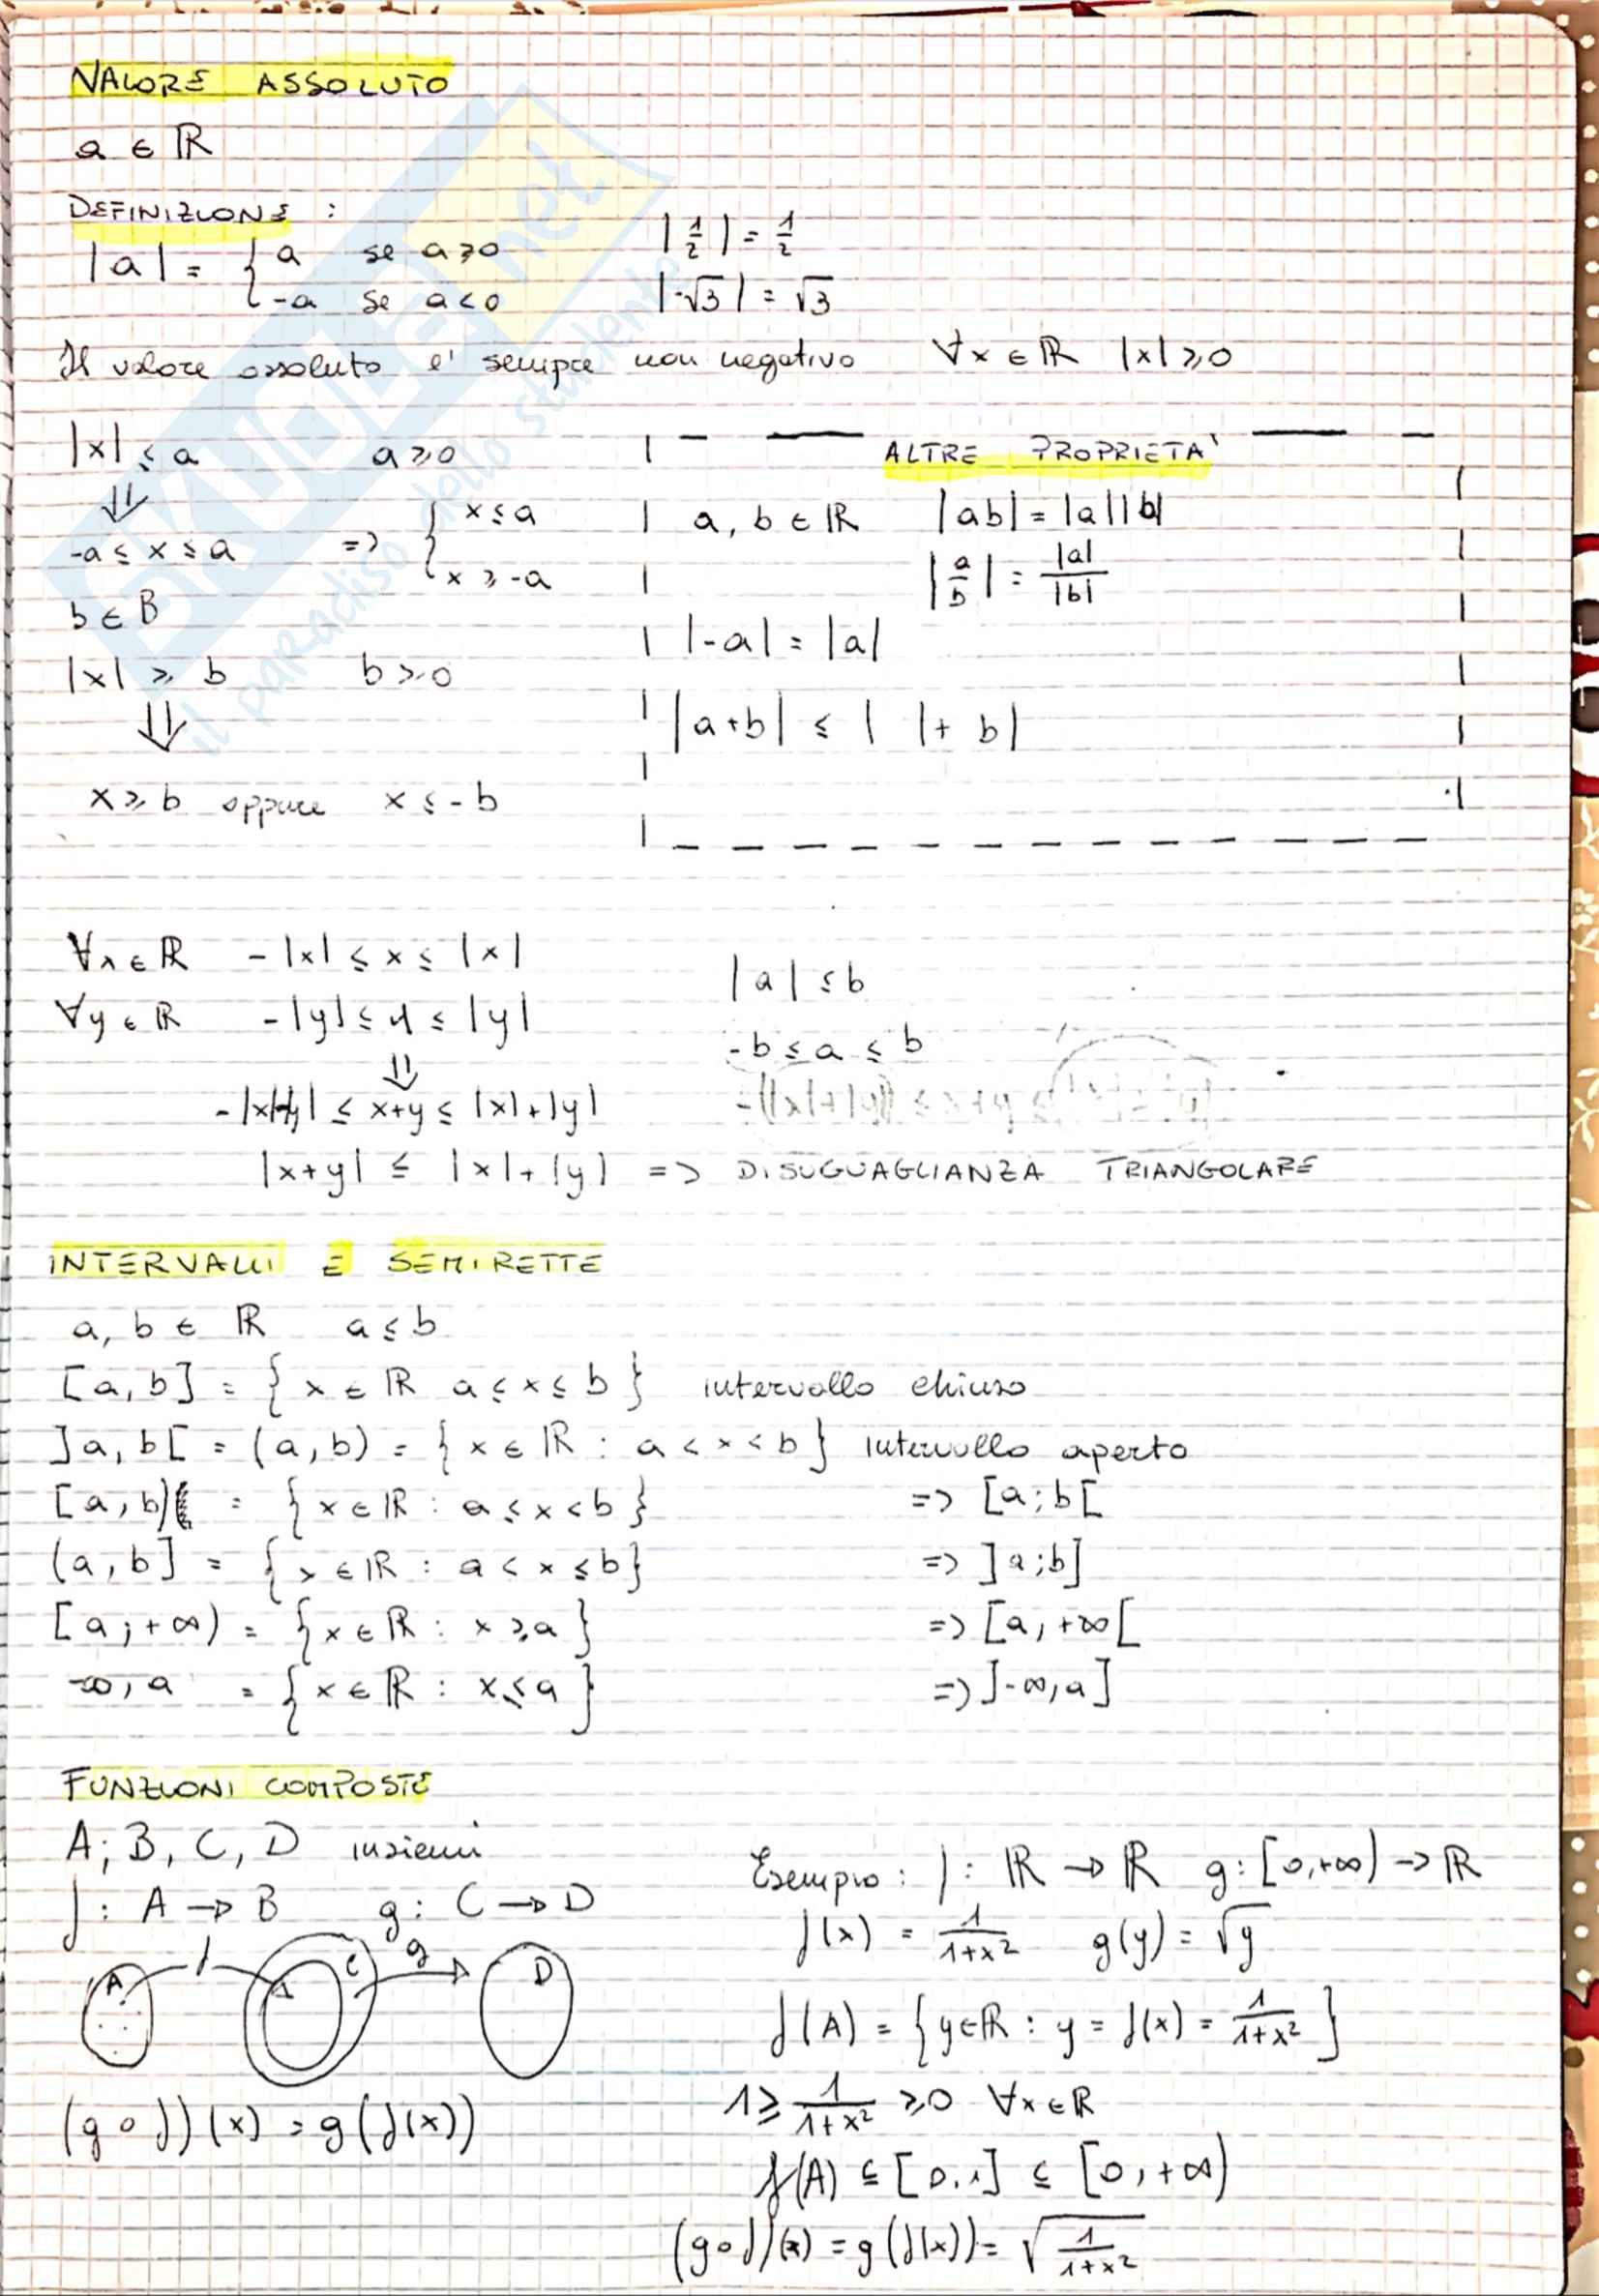 VALORE ASSOLUTO
a ∈ ℝ
DEFINIZIONE :
|a| = { a se a ≥ 0
{ -a se a < 0
|1/2| = 1/2
|-√3| = √3
Il valore assoluto e' sempre non negativo ∀x ∈ ℝ |x| ≥ 0
|x| ≤ a a ≥ 0
⇓
-a ≤ x ≤ a => { x ≤ a
{ x ≥ -a
b ∈ B
|x| ≥ b b ≥ 0
⇓
x ≥ b oppure x ≤ - b
ALTRE PROPRIETA'
a, b ∈ ℝ |ab| = |a||b|
|a/b| = |a|/|b|
|-a| = |a|
|a+b| ≤ | |+ b|
∀x ∈ ℝ - |x| ≤ x ≤ |x|
∀y ∈ ℝ - |y| ≤ y ≤ |y|
⇓
-|x|-|y| ≤ x+y ≤ |x|+|y|
|a| ≤ b
-b ≤ a ≤ b
-(|x|+|y|) ≤ x+y ≤
|x+y| ≤ |x|+|y| => DISUGUAGLIANZA TRIANGOLARE
INTERVALLI E SEMIRETTE
a, b ∈ ℝ a ≤ b
[a, b] = { x ∈ ℝ a ≤ x ≤ b } intervallo chiuso
]a, b[ = (a, b) = { x ∈ ℝ : a < x < b } intervallo aperto
[a, b) = { x ∈ ℝ : a ≤ x < b } => [a; b[
(a, b] = { x ∈ ℝ : a < x ≤ b } => ]a; b]
[a; +∞) = { x ∈ ℝ : x ≥ a } => [a, +∞[
-∞, a = { x ∈ ℝ : x ≤ a } => ]-∞, a]
FUNZIONI COMPOSTE
A; B, C, D insiemi
f : A → B g : C → D
A f C g D
(g ∘ f)(x) = g(f(x))
Esempio : f : ℝ → ℝ g : [0, +∞) → ℝ
f(x) = 1/(1+x²) g(y) = √y
f(A) = { y ∈ ℝ : y = f(x) = 1/(1+x²) }
1 ≥ 1/(1+x²) ≥ 0 ∀x ∈ ℝ
f(A) ⊆ [0, 1] ⊆ [0, +∞)
(g ∘ f)(x) = g(f(x)) = √(1/(1+x²))
SKUOLA.net
il paradiso dello studente